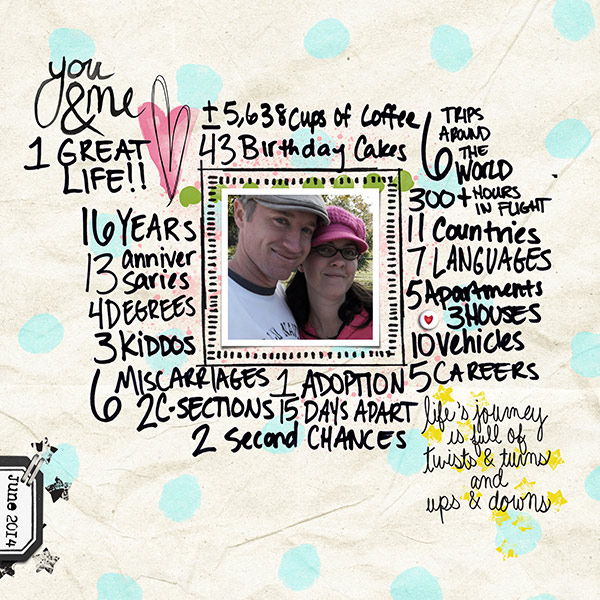 you
& me
1 GREAT
LIFE!!
± 5,638 Cups of Coffee
43 Birthday Cakes
6 TRIPS
AROUND
THE
WORLD
300+ HOURS
IN FLIGHT
11 Countries
7 LANGUAGES
5 Apartments
3 HOUSES
10 Vehicles
5 CAREERS
16 YEARS
13 anniver
saries
4 DEGREES
3 KIDDOS
6 MISCARRIAGES 1 ADOPTION
2 C-SECTIONS 15 DAYS APART
2 Second CHANCES
life's journey
is full of
twists & turns
and
ups & downs
June 2014